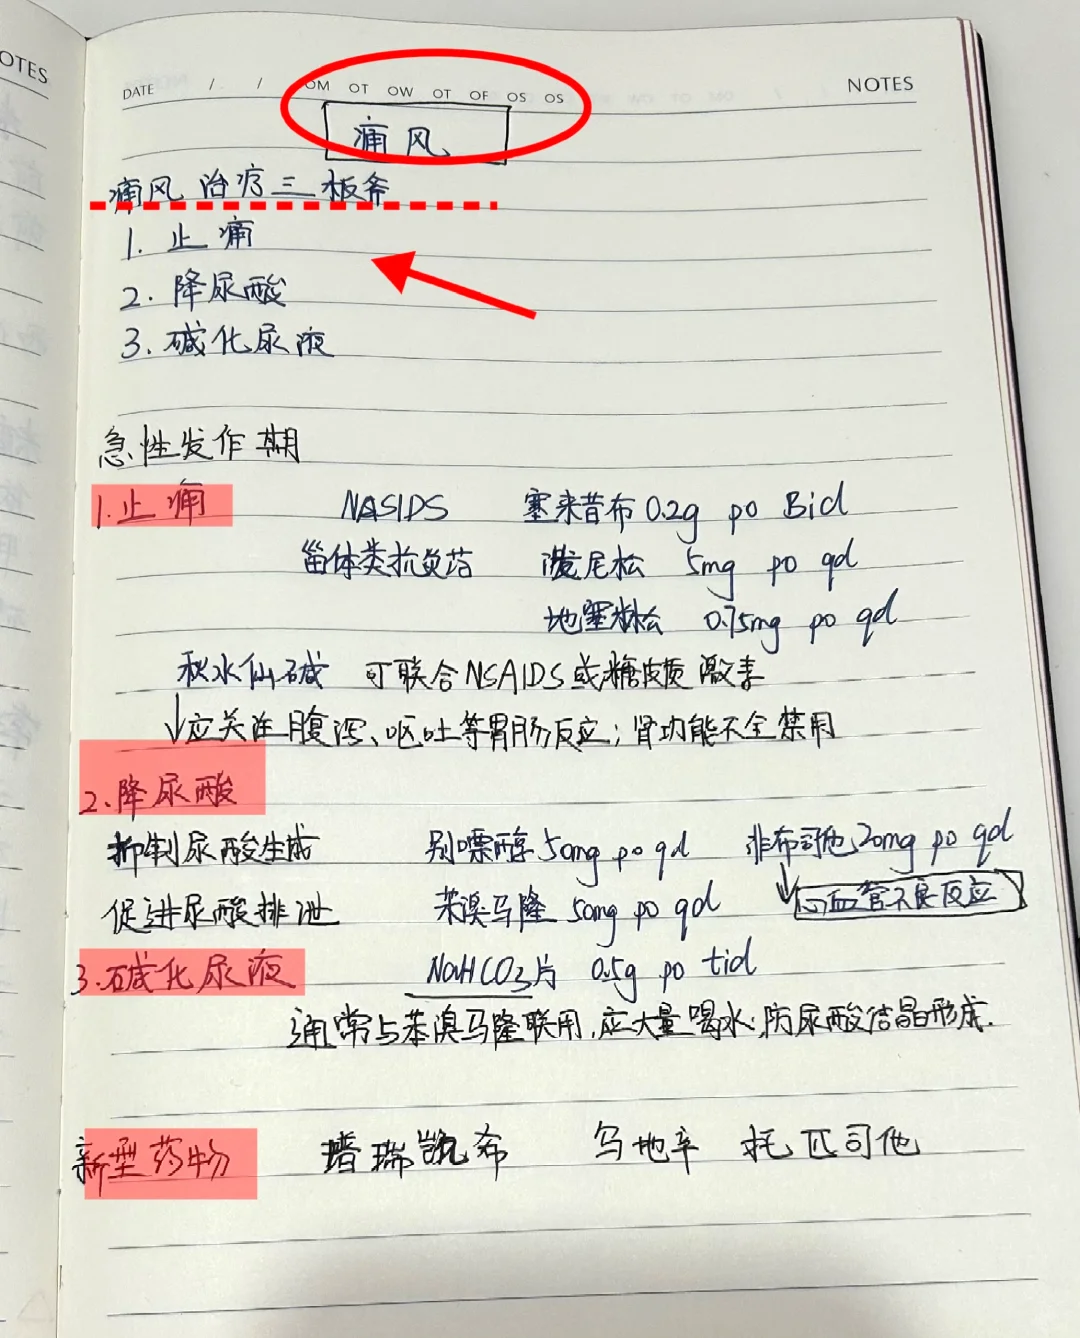 OTES
DATE / / OM OT OW OT OF OS OS NOTES
痛风
痛风治疗三板斧
1. 止痛
2. 降尿酸
3. 碱化尿液
急性发作期
1. 止痛 NASIDS 塞来昔布 0.2g po Bid
甾体类抗炎药 泼尼松 5mg po qd
地塞米松 0.75mg po qd
秋水仙碱 可联合NSAIDS或糖皮质激素
↓应关注腹泻、呕吐等胃肠反应；肾功能不全禁用
2. 降尿酸
抑制尿酸生成 别嘌醇 50mg po qd 非布司他 20mg po qd
促进尿酸排泄 苯溴马隆 50mg po qd ↓心血管不良反应
3. 碱化尿液 NaHCO3片 0.5g po tid
通常与苯溴马隆联用，应大量喝水：防尿酸结晶形成.
新型药物 瑞凯布 乌地辛 托匹司他